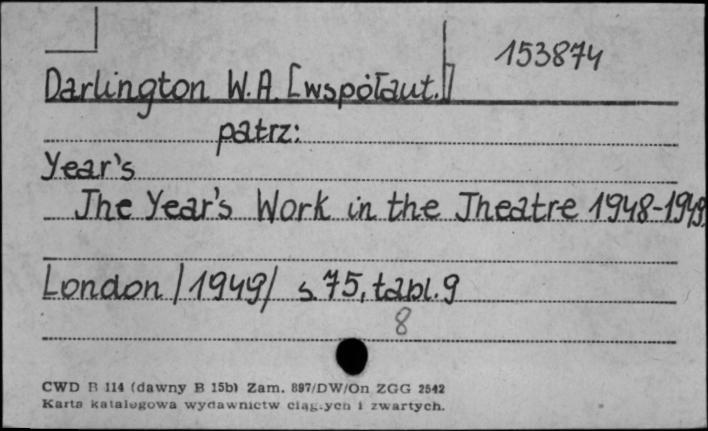 153874
Darlington W.A. [współaut.]
patrz:
Year's
The Year's Work in the Theatre 1948-1949.
London /1949/ s.75, tabl.9
8
CWD B 114 (dawny B 15b) Zam. 897/DW/On ZGG 2542
Karta katalogowa wydawnictw ciągłych i zwartych.